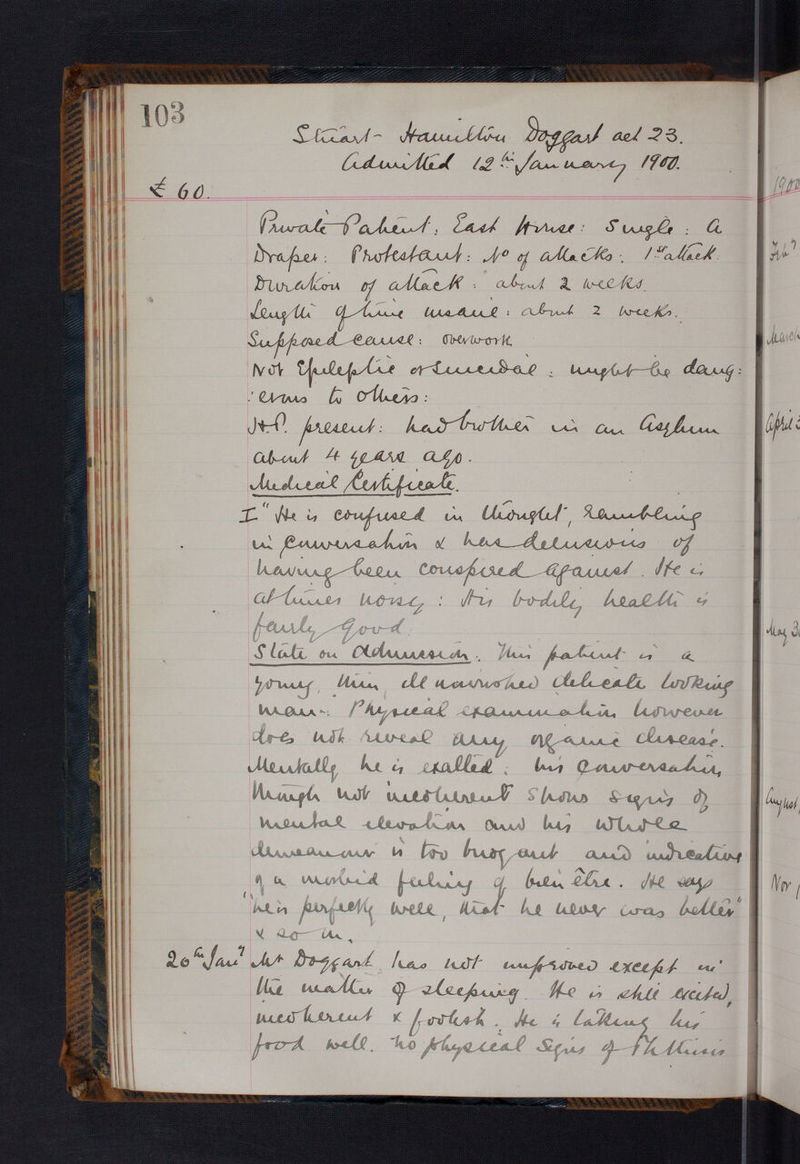 103
Stuart Hamilton Doggart aet 23.
Admitted 12th January 1900.
£ 60.
Private Patient: East House: Single: A
Draper: Protestant: No of attacks: 1st attack.
Duration of attack: about 2 weeks.
Length of time insane: about 2 weeks.
Supposed cause: overwork
Not Epileptic or Suicidal: might be dang:
:erous to others:
H.P. present: had brother in an Asylum
about 4 years ago.
Medical Certificate.
I "He is confused in thought, rambling
in conversation & has delusions of
having been conspired against. He is
at times noisy: His bodily health is
fairly good.
State on Admission. This patient is a
young, thin, ill nourished delicate looking
man. Physical examination however
does not reveal any organic disease.
Mentally he is exalted: his conversation,
though not incoherent shows signs of
mental elevation and his whole
demeanour is too buoyant and indicative
of a morbid feeling of bien être. He says
"he is perfectly well, that he never was better"
& so on.
20th Jany Mr Doggart has not improved except in
the matter of sleeping. He is still excited,
incoherent & foolish. He is taking his
food well. No physical signs of Phthisis
1900
Feby
March
April
May 3
August
Nov